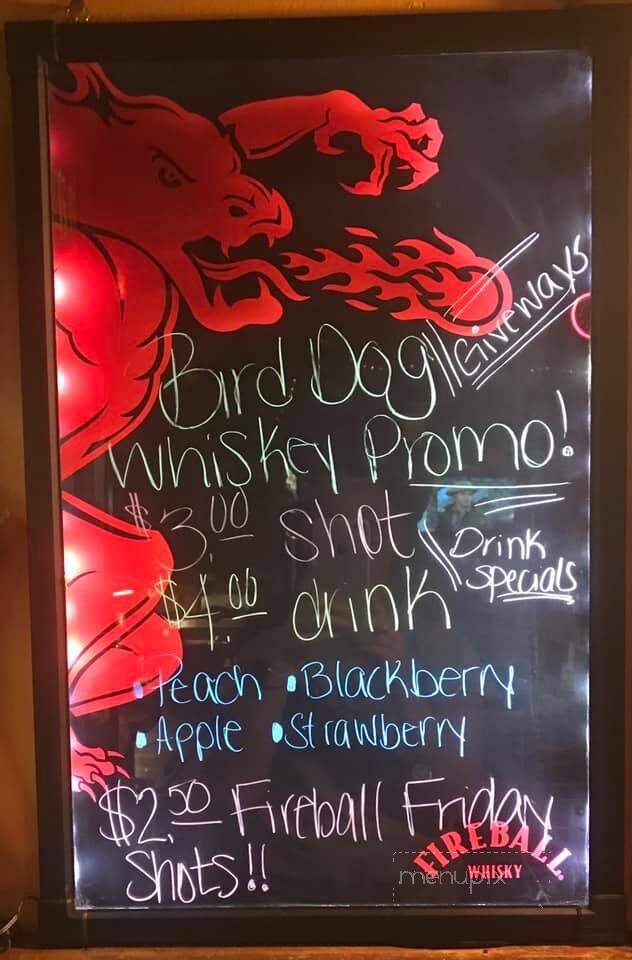 Bird Dog
Giveways
Whiskey Promo!
$3.00 shot
$4.00 drink
Drink
Specials
• Peach • Blackberry
• Apple • Strawberry
$2.50 Fireball Friday
Shots!!
FIREBALL
WHISKY
menupix